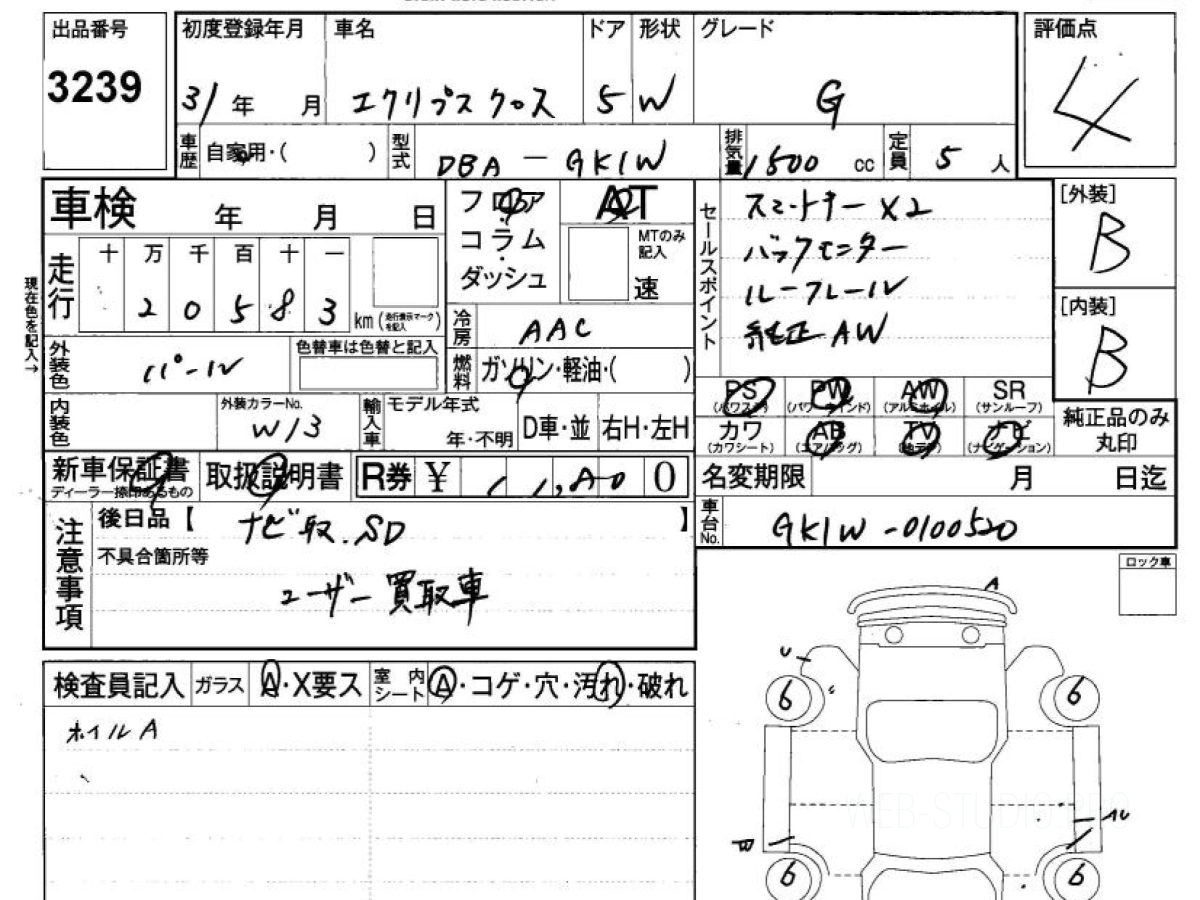 出品番号
3239
初度登録年月
31年 月
車名
エクリプス クロス
ドア
5
形状
W
グレード
G
評価点
4
車歴 自家用・( )
型式 DBA-GK1W
排気量 1500 cc
定員 5 人
車検 年 月 日
フロア
コラム
ダッシュ
AT
MTのみ記入
速
セールスポイント
スマートキー X2
バックモニター
ルーフレール
純正 AW
[外装]
B
[内装]
B
現在色を記入→
走行
十 万 千 百 十 一
2 0 5 8 3 km
(走行表示マークを記入)
冷房 AAC
燃料 ガソリン・軽油・( )
外装色 パール
色替車は色替と記入
内装色
外装カラーNo.
W13
輸入車
モデル年式
年・不明
D車・並
右H・左H
PS (パワステ)
PW (パワーウインド)
AW (アルミホイル)
SR (サンルーフ)
カワ (カワシート)
AB (エアバッグ)
TV
ナビ (ナビゲーション)
純正品のみ
丸印
新車保証書
ディーラー捺印あるもの
取扱説明書
R券 ¥ 0
名変期限 月 日迄
車台No. GK1W-0100520
注意事項
後日品【 ナビ取.SD 】
不具合箇所等
ユーザー買取車
ロック車
検査員記入
ガラス A・X要ス
室内シート A・コゲ・穴・汚れ・破れ
ホイルA
A
U
6
6
W
6
6
WEB-STUDIO.PRO